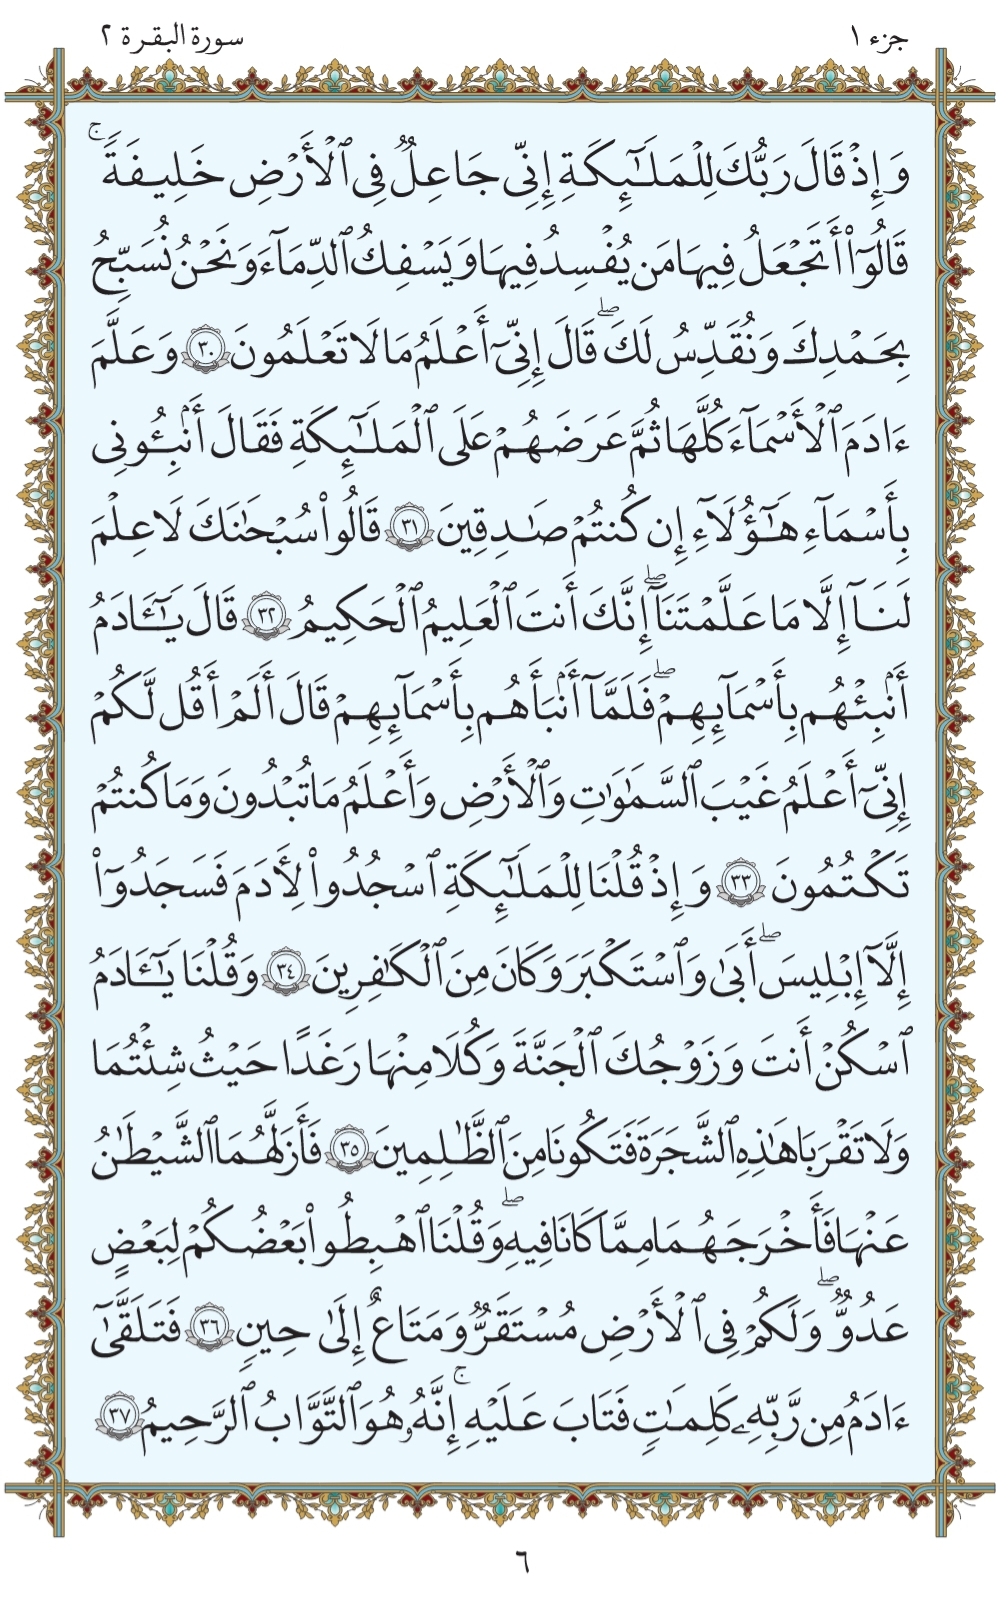 جزء ١
سورة البقرة ٢
وَإِذْ قَالَ رَبُّكَ لِلْمَلَٰٓئِكَةِ إِنِّى جَاعِلٌ فِى ٱلْأَرْضِ خَلِيفَةً ۖ
قَالُوٓا۟ أَتَجْعَلُ فِيهَا مَن يُفْسِدُ فِيهَا وَيَسْفِكُ ٱلدِّمَآءَ وَنَحْنُ نُسَبِّحُ
بِحَمْدِكَ وَنُقَدِّسُ لَكَ ۖ قَالَ إِنِّىٓ أَعْلَمُ مَا لَا تَعْلَمُونَ ٣٠ وَعَلَّمَ
ءَادَمَ ٱلْأَسْمَآءَ كُلَّهَا ثُمَّ عَرَضَهُمْ عَلَى ٱلْمَلَٰٓئِكَةِ فَقَالَ أَنۢبِـُٔونِى
بِأَسْمَآءِ هَٰٓؤُلَآءِ إِن كُنتُمْ صَٰدِقِينَ ٣١ قَالُوا۟ سُبْحَٰنَكَ لَا عِلْمَ
لَنَآ إِلَّا مَا عَلَّمْتَنَآ ۖ إِنَّكَ أَنتَ ٱلْعَلِيمُ ٱلْحَكِيمُ ٣٢ قَالَ يَٰٓـَٔادَمُ
أَنۢبِئْهُم بِأَسْمَآئِهِمْ ۖ فَلَمَّآ أَنۢبَأَهُم بِأَسْمَآئِهِمْ قَالَ أَلَمْ أَقُل لَّكُمْ
إِنِّىٓ أَعْلَمُ غَيْبَ ٱلسَّمَٰوَٰتِ وَٱلْأَرْضِ وَأَعْلَمُ مَا تُبْدُونَ وَمَا كُنتُمْ
تَكْتُمُونَ ٣٣ وَإِذْ قُلْنَا لِلْمَلَٰٓئِكَةِ ٱسْجُدُوا۟ لِـَٔادَمَ فَسَجَدُوٓا۟
إِلَّآ إِبْلِيسَ ۖ أَبَىٰ وَٱسْتَكْبَرَ وَكَانَ مِنَ ٱلْكَٰفِرِينَ ٣٤ وَقُلْنَا يَٰٓـَٔادَمُ
ٱسْكُنْ أَنتَ وَزَوْجُكَ ٱلْجَنَّةَ وَكُلَا مِنْهَا رَغَدًا حَيْثُ شِئْتُمَا
وَلَا تَقْرَبَا هَٰذِهِ ٱلشَّجَرَةَ فَتَكُونَا مِنَ ٱلظَّٰلِمِينَ ٣٥ فَأَزَلَّهُمَا ٱلشَّيْطَٰنُ
عَنْهَا فَأَخْرَجَهُمَا مِمَّا كَانَا فِيهِ ۖ وَقُلْنَا ٱهْبِطُوا۟ بَعْضُكُمْ لِبَعْضٍ
عَدُوٌّ ۖ وَلَكُمْ فِى ٱلْأَرْضِ مُسْتَقَرٌّ وَمَتَٰعٌ إِلَىٰ حِينٍ ٣٦ فَتَلَقَّىٰٓ
ءَادَمُ مِن رَّبِّهِۦ كَلِمَٰتٍ فَتَابَ عَلَيْهِ ۚ إِنَّهُۥ هُوَ ٱلتَّوَّابُ ٱلرَّحِيمُ ٣٧
٦